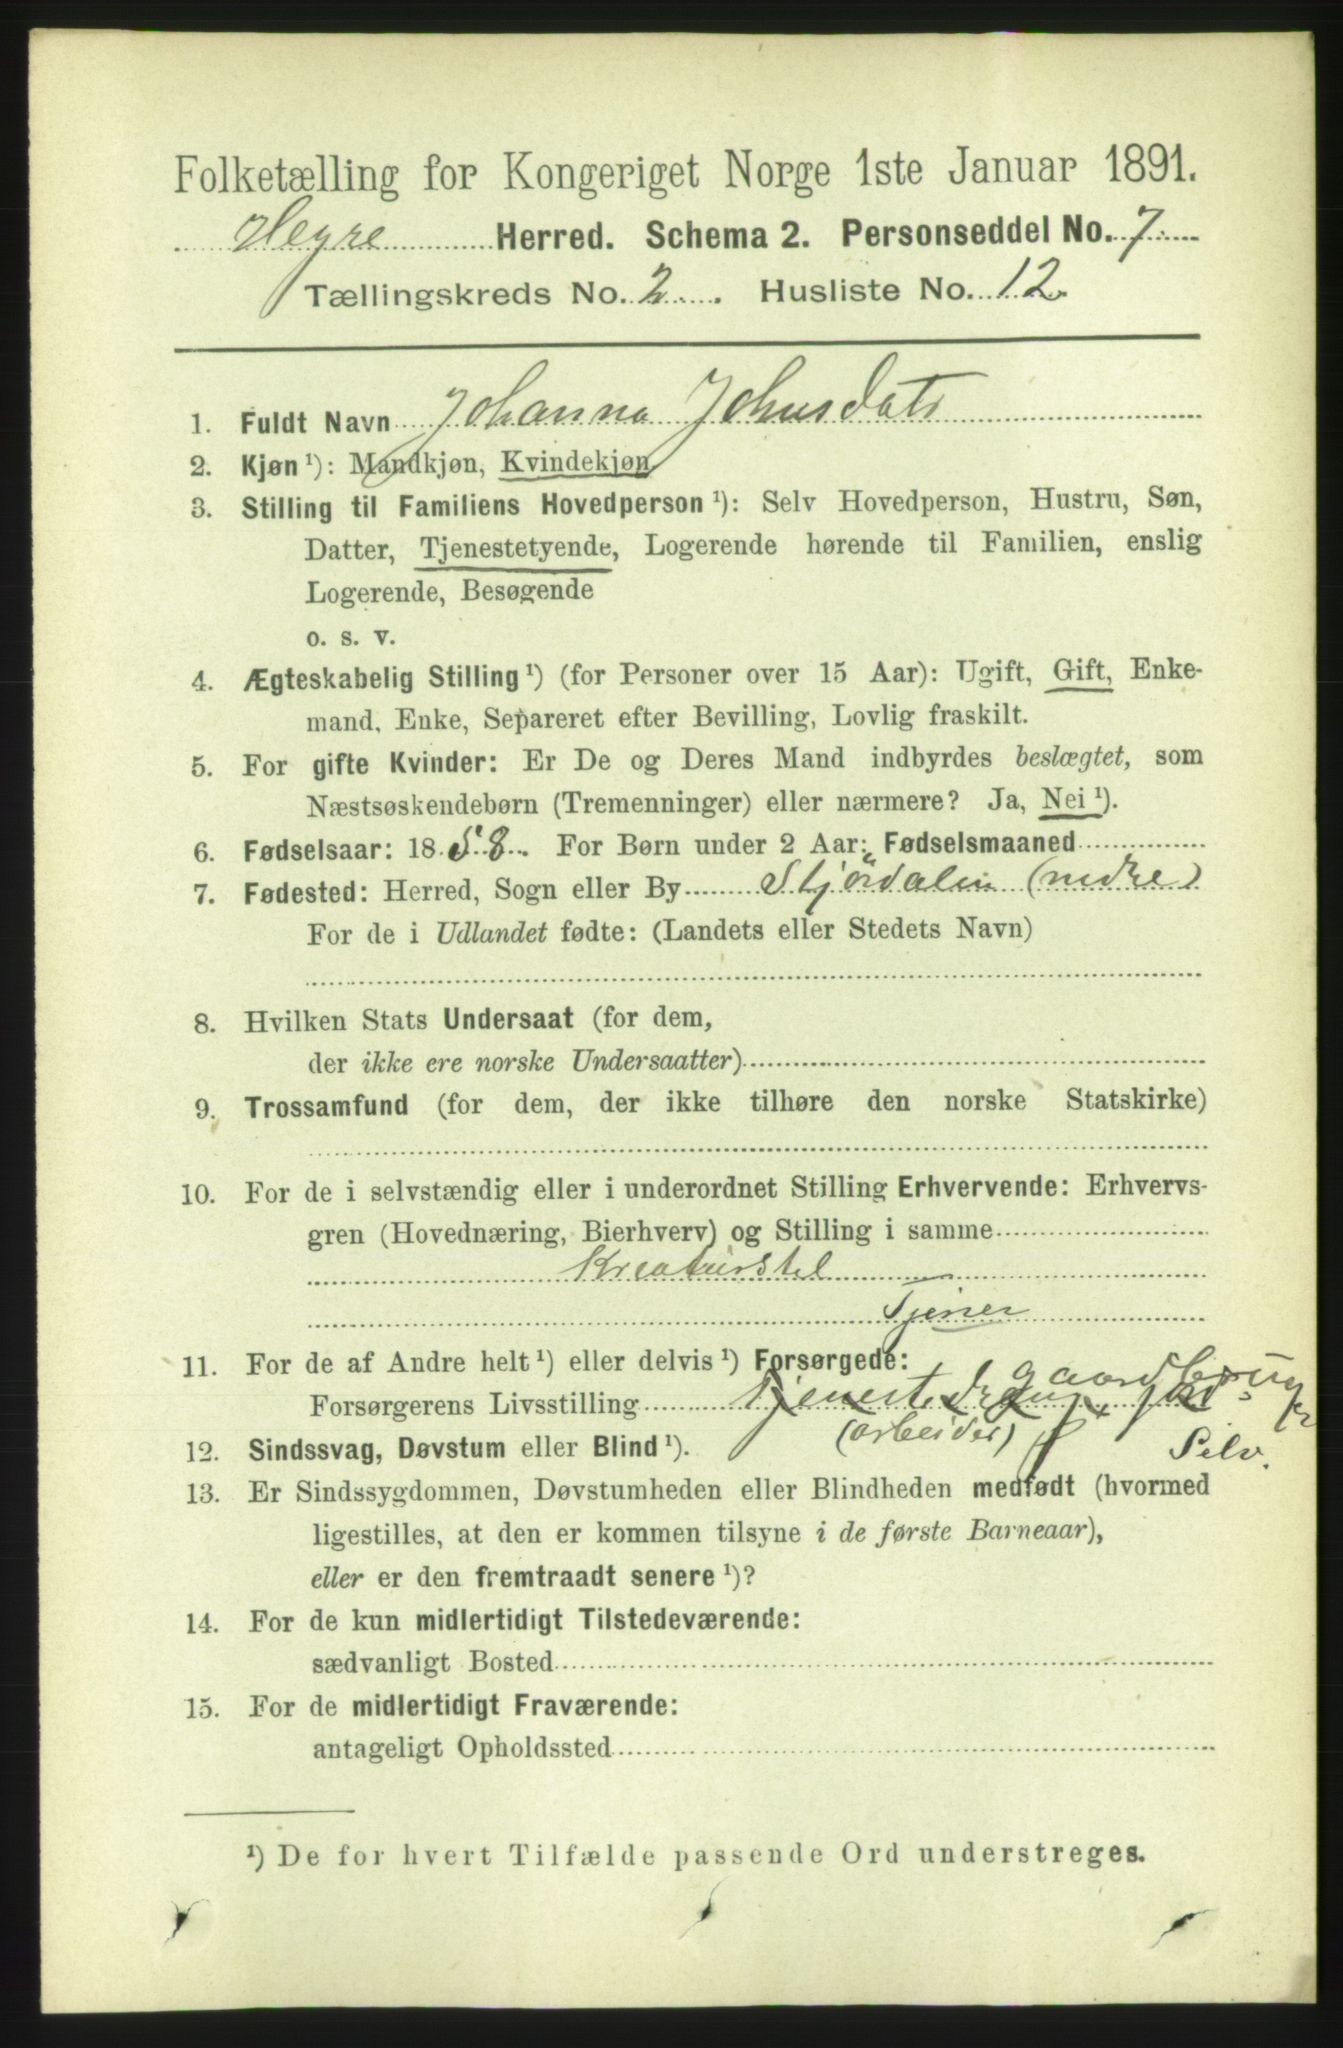 Folketælling for Kongeriget Norge 1ste Januar 1891.
Hegre Herred. Schema 2. Personseddel No. 7
Tællingskreds No. 2. Husliste No. 12.
1. Fuldt Navn Johanna Johnsdatr
2. Kjøn ¹): Mandkjøn, Kvindekjøn
3. Stilling til Familiens Hovedperson ¹): Selv Hovedperson, Hustru, Søn,
Datter, Tjenestetyende, Logerende hørende til Familien, enslig
Logerende, Besøgende
o. s. v.
4. Ægteskabelig Stilling ¹) (for Personer over 15 Aar): Ugift, Gift, Enke-
mand, Enke, Separeret efter Bevilling, Lovlig fraskilt.
5. For gifte Kvinder: Er De og Deres Mand indbyrdes beslægtet, som
Næstsøskendebørn (Tremenninger) eller nærmere? Ja, Nei ¹).
6. Fødselsaar: 1858. For Børn under 2 Aar: Fødselsmaaned
7. Fødested: Herred, Sogn eller By Stjördalen (nedre)
For de i Udlandet fødte: (Landets eller Stedets Navn)
8. Hvilken Stats Undersaat (for dem,
der ikke ere norske Undersaatter)
9. Trossamfund (for dem, der ikke tilhøre den norske Statskirke)
10. For de i selvstændig eller i underordnet Stilling Erhvervende: Erhvervs-
gren (Hovednæring, Bierhverv) og Stilling i samme
Kreaturstel
Tjener
11. For de af Andre helt ¹) eller delvis ¹) Forsørgede:
gaardbruger
Forsørgerens Livsstilling
(arbeider) Selv.
12. Sindssvag, Døvstum eller Blind ¹).
13. Er Sindssygdommen, Døvstumheden eller Blindheden medfødt (hvormed
ligestilles, at den er kommen tilsyne i de første Barneaar),
eller er den fremtraadt senere ¹)?
14. For de kun midlertidigt Tilstedeværende:
sædvanligt Bosted
15. For de midlertidigt Fraværende:
antageligt Opholdssted
¹) De for hvert Tilfælde passende Ord understreges.